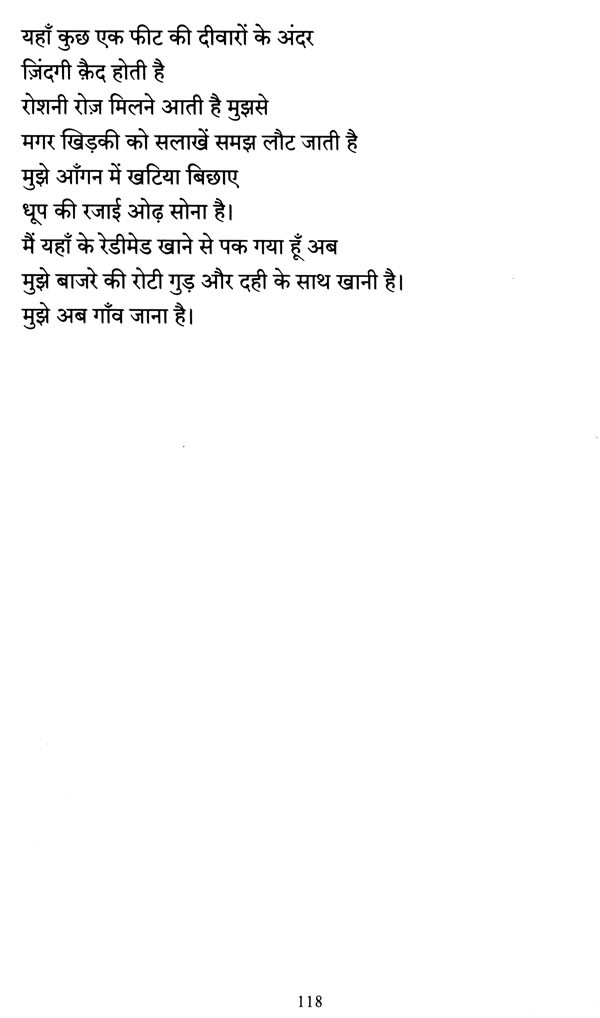 यहाँ कुछ एक फीट की दीवारों के अंदर
ज़िंदगी क़ैद होती है
रोशनी रोज़ मिलने आती है मुझसे
मगर खिड़की को सलाखें समझ लौट जाती है
मुझे आँगन में खटिया बिछाए
धूप की रजाई ओढ़ सोना है।
मैं यहाँ के रेडीमेड खाने से पक गया हूँ अब
मुझे बाजरे की रोटी गुड़ और दही के साथ खानी है।
मुझे अब गाँव जाना है।
118